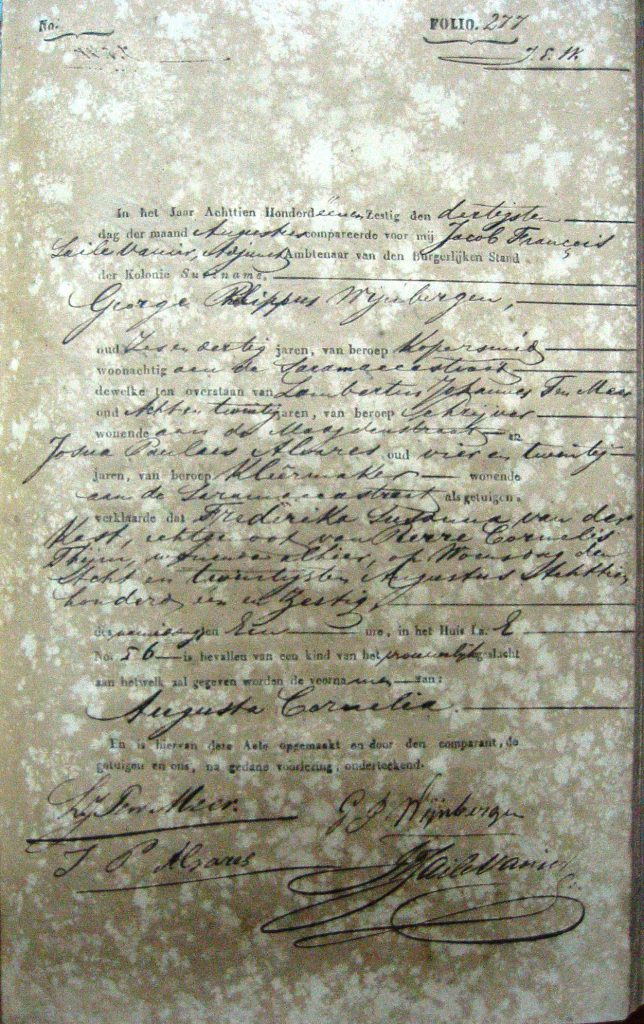 No.
FOLIO. 277
In het Jaar Achttien Honderd éénen Zestig den dertigsten
dag der maand Augustus compareerde voor mij Jacob François
Ambtenaar van den Burgerlijken Stand
der Kolonie Suriname,
George Philippus Wijnbergen,
oud Zes en dertig jaren, van beroep Kopersmid
woonachtig aan de Saramaccastraat
dewelke ten overstaan van Lambertus Johannes Ten Meer
oud Acht en twintig jaren, van beroep Schrijver
wonende aan de Maagdenstraat en
Josua Paulus Alvares oud vier en twintig
jaren, van beroep Kleermaker wonende
aan de Saramaccastraat als getuigen,
verklaarde dat Frederika Susanna van der
echtgenoot van Pierre Cornelis
alhier, op Woensdag den
Acht en twintigsten Augustus Achttien
honderd één en Zestig,
des namiddags ten Een ure, in het Huis La. E
No. 56 is bevallen van een kind van het vrouwelijk geslacht
aan hetwelk zal gegeven worden de voornamen van:
Augusta Cornelia.
En is hiervan deze Acte opgemaakt en door den comparant, de
getuigen en ons, na gedane voorlezing, onderteekend.
Ten Meer
G P Wijnbergen
J P Alvares